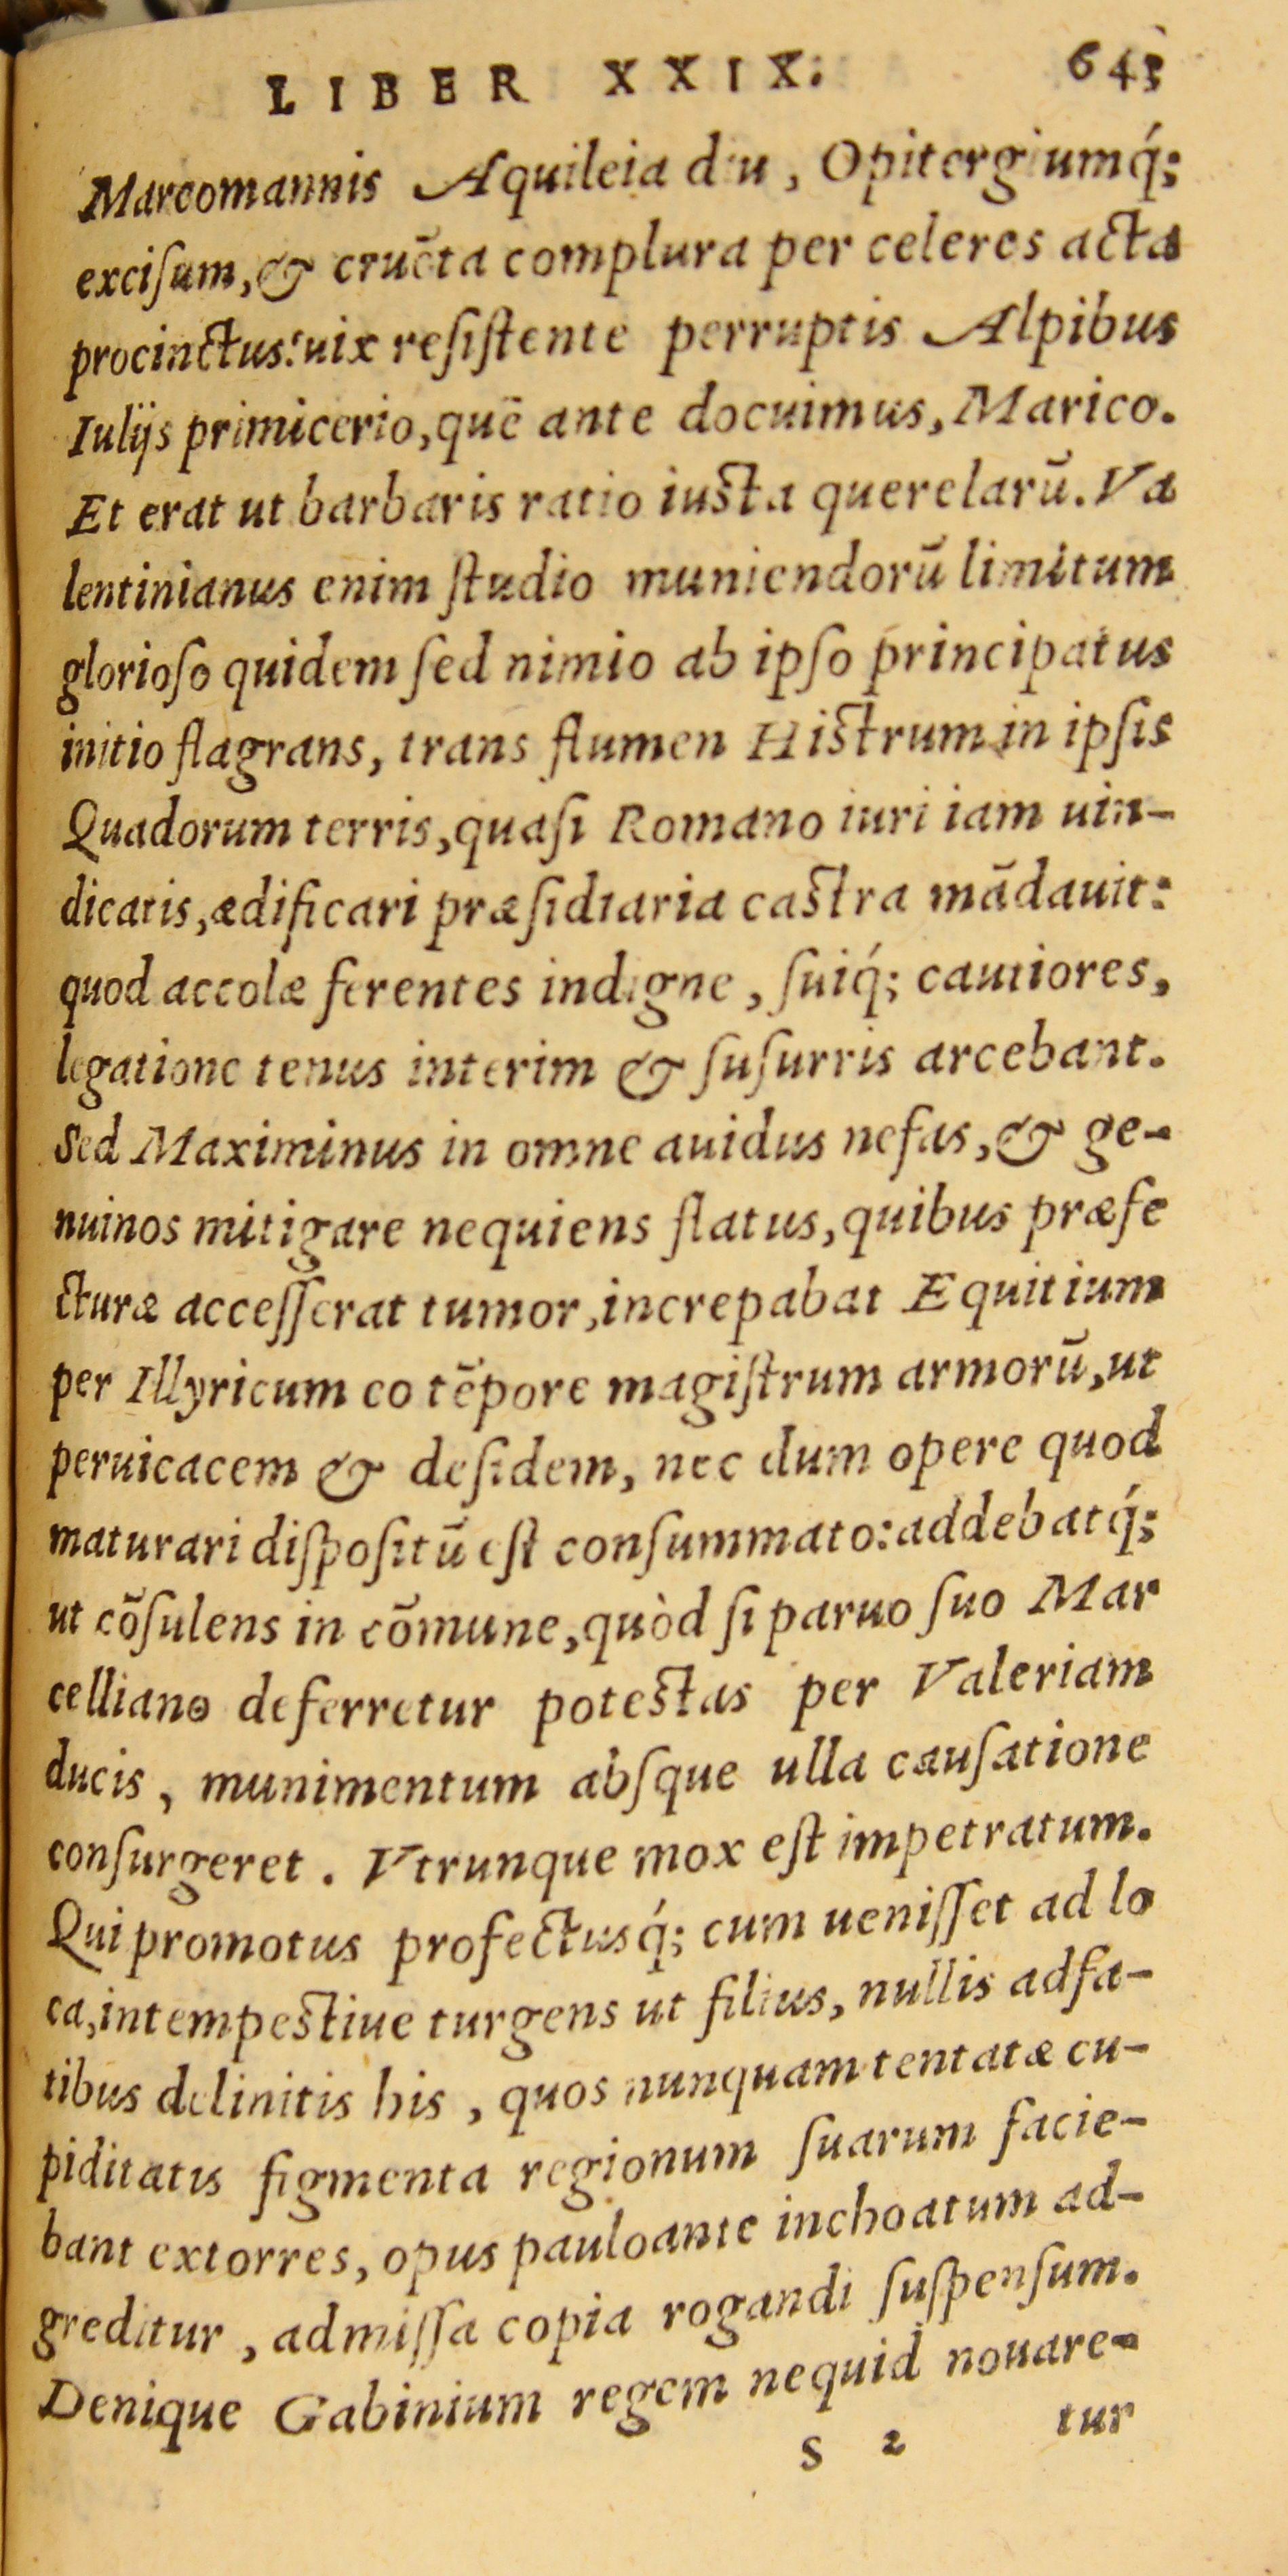 LIBER XXIX. 643
Marcomannis Aquileia diu, Opitergiumq́;
exciſum, & cruēta complura per celeres acta
procinctus: uix reſiſtente perruptis Alpibus
Iulijs primicerio, quē ante docuimus, Marico.
Et erat ut barbaris ratio iusta querelarū. Va
lentinianus enim ſtudio muniendorū limitum
glorioſo quidem ſed nimio ab ipſo principatus
initio flagrans, trans flumen Histrum in ipſis
Quadorum terris, quaſi Romano iuri iam uin-
dicatis, ædificari præſidiaria castra mādauit:
quod accolæ ferentes indigne, ſuiq́; cautiores,
legatione tenus interim & ſuſurris arcebant.
Sed Maximinus in omne auidus nefas, & ge-
nuinos mitigare nequiens flatus, quibus præfe
cturæ acceſſerat tumor, increpabat Equitium
per Illyricum eo tēpore magiſtrum armorū, ut
peruicacem & deſidem, nec dum opere quod
maturari diſpoſitū eſt conſummato: addebatq́;
ut cōſulens in cōmune, quòd ſi paruo ſuo Mar
celliano deferretur potestas per Valeriam
ducis, munimentum abſque ulla cauſatione
conſurgeret. Vtrunque mox eſt impetratum.
Qui promotus profectusq́; cum ueniſſet ad lo
ca, intempestiue turgens ut filius, nullis adfa-
tibus delinitis his, quos nunquam tentatæ cu-
piditatis figmenta regionum ſuarum facie-
bant extorres, opus pauloante inchoatum ad-
greditur, admiſſa copia rogandi ſuſpenſum.
Denique Gabinium regem nequid nouare-
S 2 tur